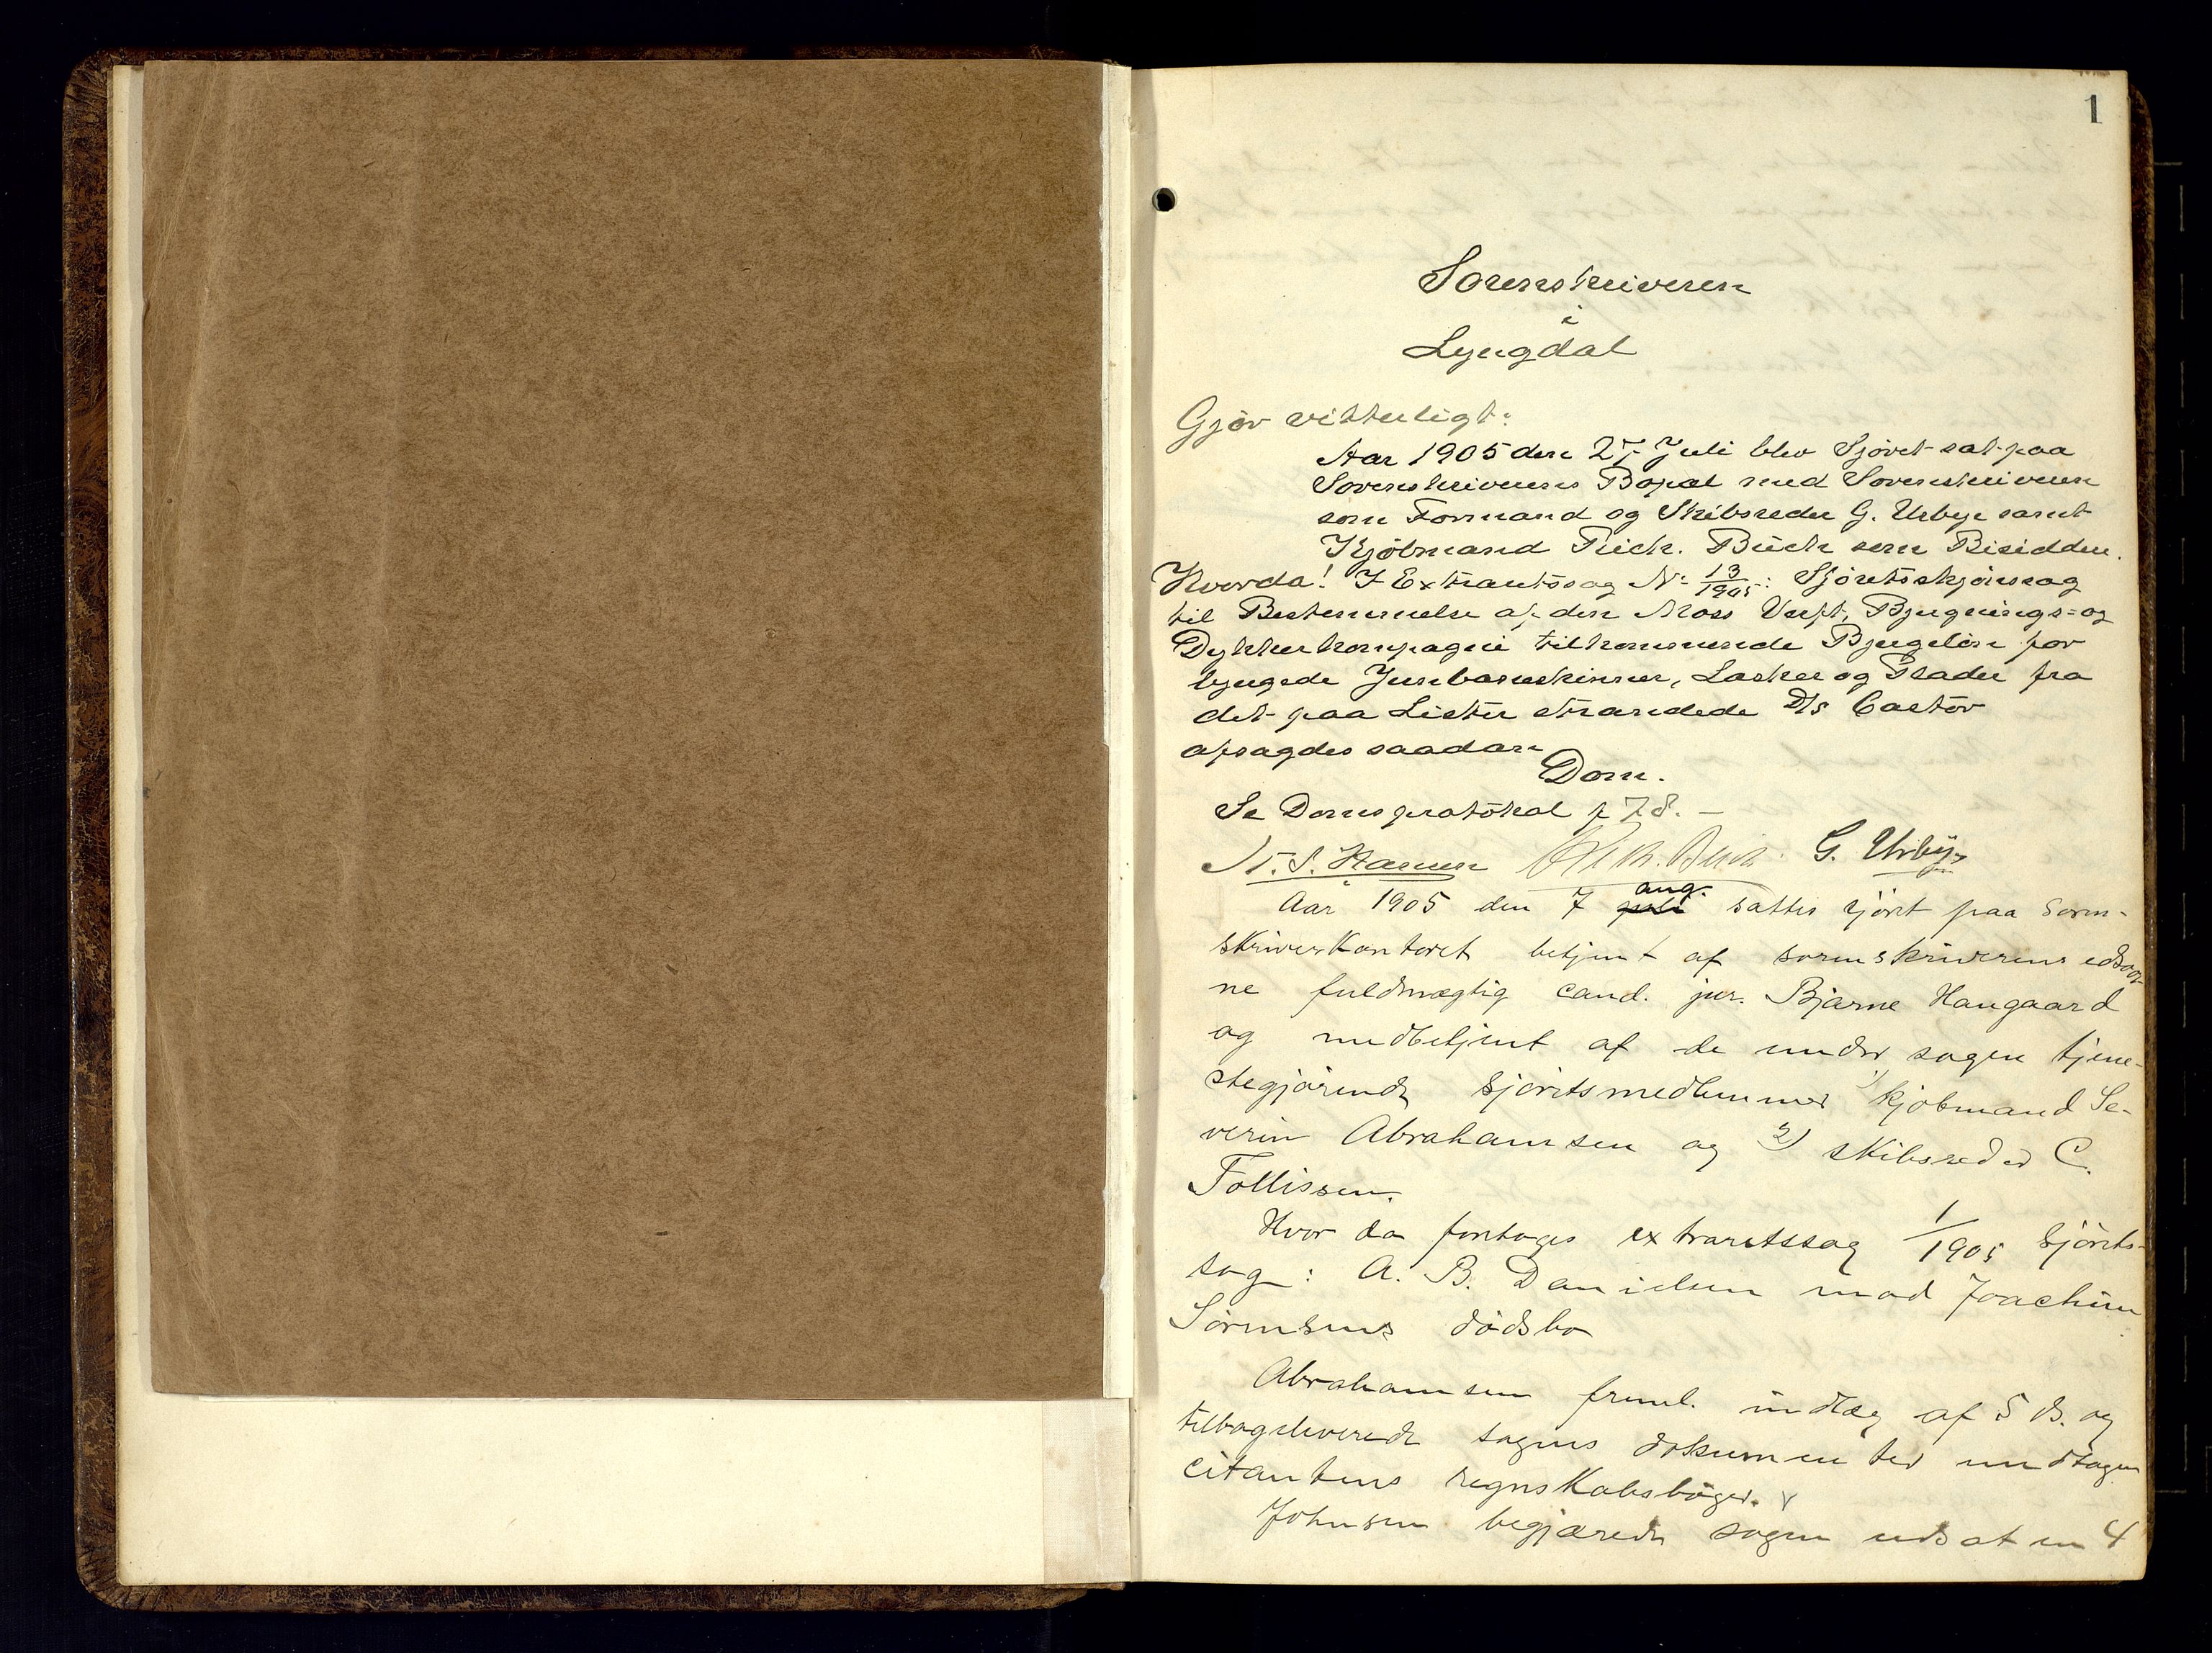 1
Sorenskriveren
i
Lyngdal
Gjør vitterligt:
Aar 1905 den 27 Juli blev Sjøret sat paa
Sorenskriverens Bopæl med Sorenskriveren
som Formand og Skibsreder G. Urbye samt
Kjøbmand Fredr. Buch som Bisiddere.
Hvorda! I Extraretssag No 13/1905: Sjøretsskjønssag
til Bestemmelse af den Moss Verft, Bjergnings- og
Dykkerkompagni tilkommende Bjergeløn for
bjergede Jernbaneskinner, Lasker og Plader fra
det paa Lister strandede D/s Castor
afsagdes saadan
Dom.
Se Domsprotokol p 78. –
G. Urbye
Aar 1905 den 7 aug. sattes sjøret paa Soren-
skriverkontoret betjent af sorenskriverens edsvor-
ne fuldmægtig cand. jur. Bjarne Haugaard
og medbetjent af de under sagen tjene-
stegjørende sjøretsmedlemmer 1) kjøbmand Se-
verin Abrahamsen og 2) skibsreder C.
Tollissen.
Hvor da foretoges extraretssag 1/1905 Sjørets-
sag: A. B. Danielsen mod Joachim
Sørensens dødsbo
Abrahamsen freml. indlæg af 5 ds. og
tilbageleverede sagens dokumenter undtagen
citantens regnskabsbøger.
Johnsen begjærede sagen udsat en 4